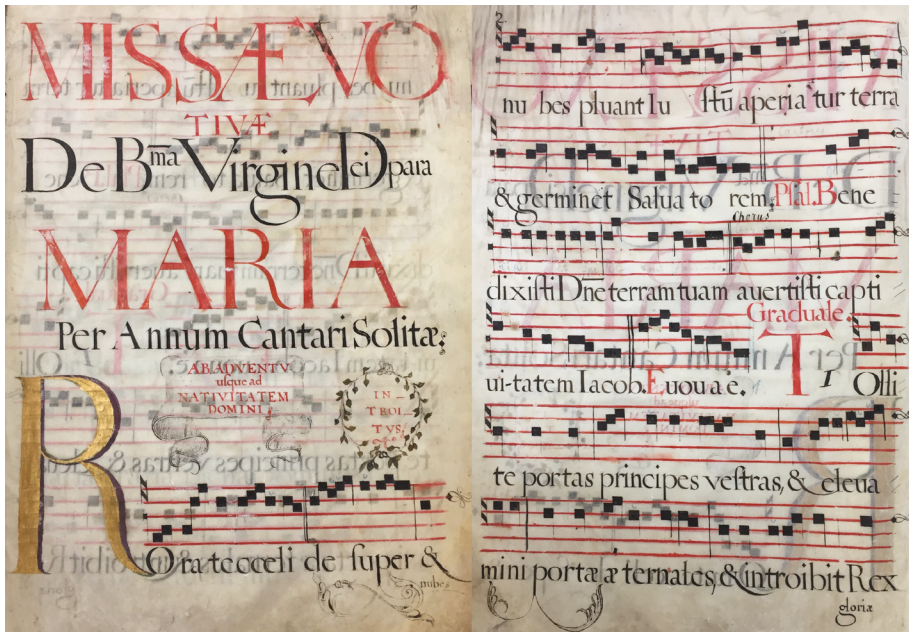 MISSÆ VO
TIVÆ
De Bma Virgine Dei para
MARIA
Per Annum Cantari Solitæ.
AB ADVENTV
usque ad
NATIVITATEM
DOMINI
IN_
TROI
TVS,
R
Orate cœli de super &
nubes
2.
nu bes pluant Iu stū aperia tur terra
& germinet Salua to rem. Psal. Bene
Chorus
dixisti Dne terram tuam auertisti capti
Graduale.
ui-tatem Iacob. Euouae. T 1 Olli
te portas principes vestras, & eleua
mini portæ æ ternales, & introibit Rex
gloriæ